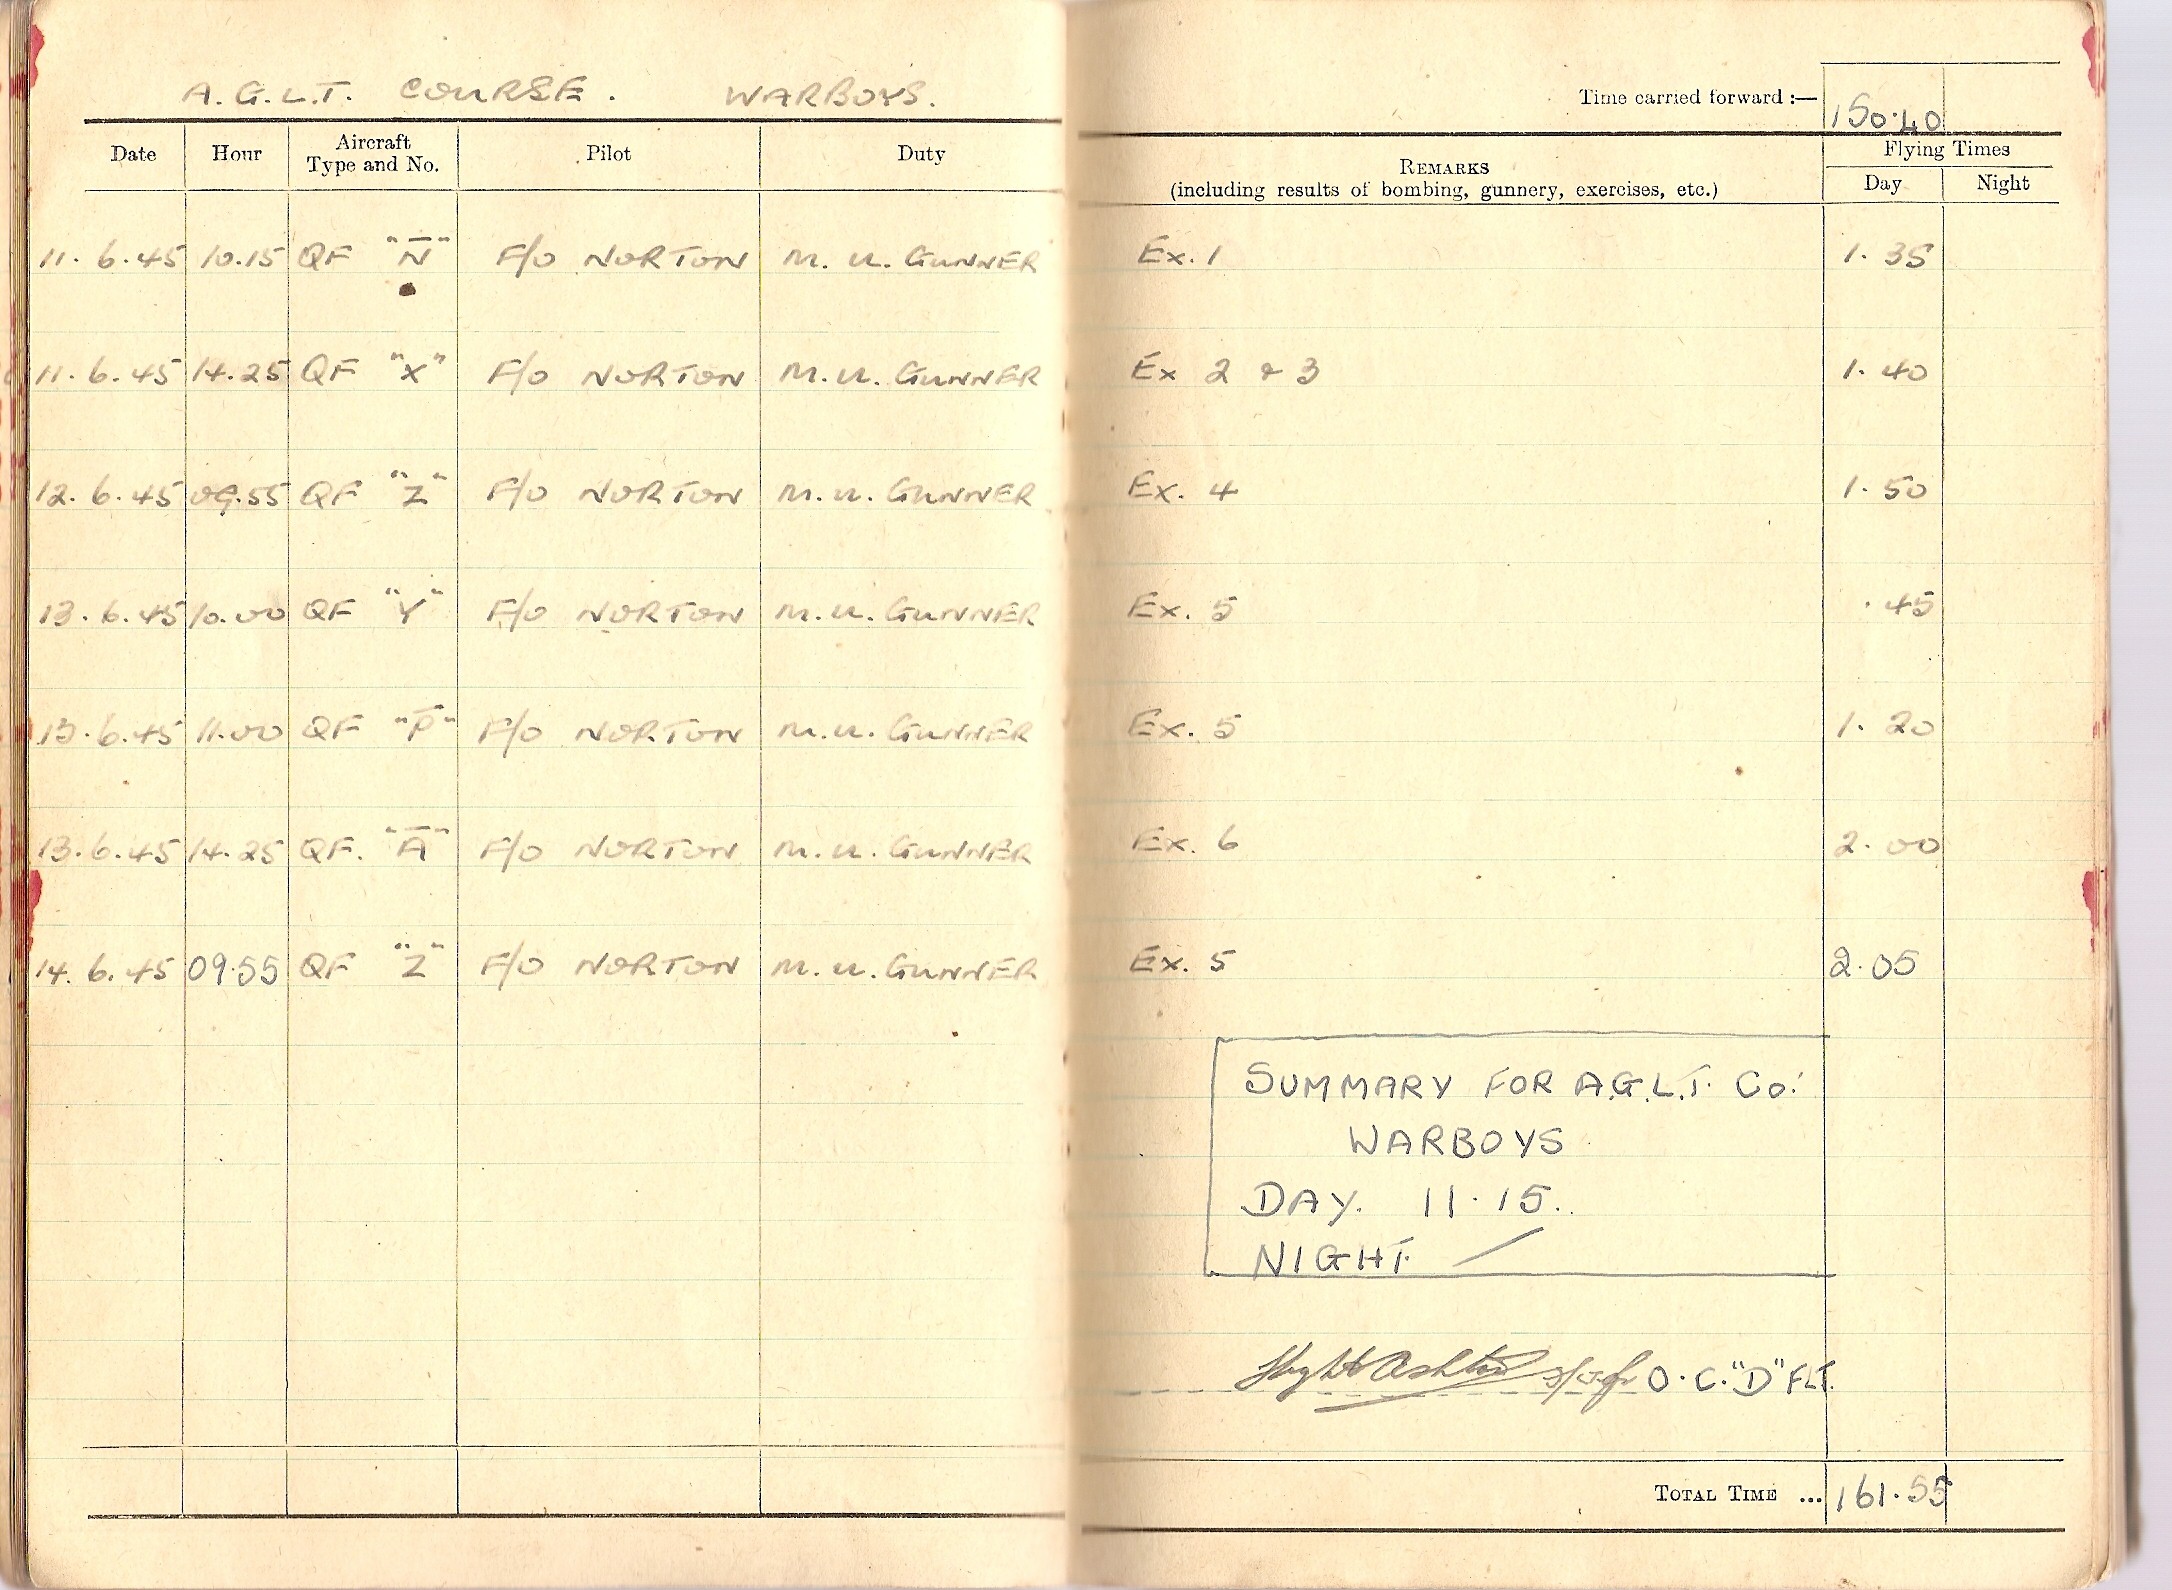 A.G.L.T. COURSE. WARBOYS.
Time carried forward :— 150.40
Date Hour Aircraft Type and No. Pilot Duty REMARKS (including results of bombing, gunnery, exercises, etc.) Flying Times Day Night
11.6.45 10.15 QF "N" F/O NORTON M.U. GUNNER Ex. 1 1.35
11.6.45 14.25 QF "X" F/O NORTON M.U. GUNNER Ex 2 & 3 1.40
12.6.45 09.55 QF "Z" F/O NORTON M.U. GUNNER Ex. 4 1.50
13.6.45 10.00 QF "Y" F/O NORTON M.U. GUNNER Ex. 5 .45
13.6.45 11.00 QF "P" F/O NORTON M.U. GUNNER Ex. 5 1.20
13.6.45 14.25 QF. "A" F/O NORTON M.U. GUNNER Ex. 6 2.00
14.6.45 09.55 QF "Z" F/O NORTON M.U. GUNNER Ex. 5 2.05
SUMMARY FOR A.G.L.T. Co:
WARBOYS
DAY. 11.15.
NIGHT. /
Ashton O.C. "D" FLT.
TOTAL TIME ... 161.55